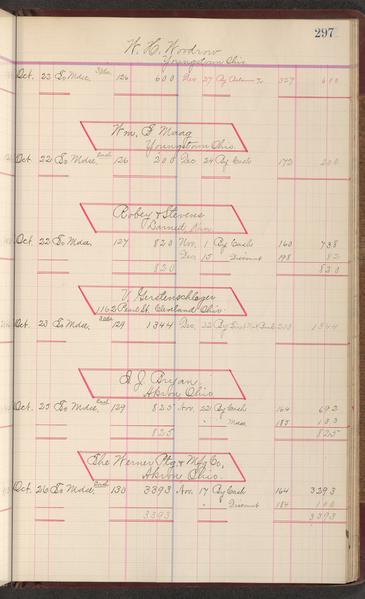 297
W. H. Woodrow
Youngstown Ohio
Oct. 23 To Mdse. 126 600 Dec 27 By 327 600
Wm. E Maag
Youngstown Ohio.
Oct 22 To Mdse. Cash 126 200 Dec 24 By Cash 172 200
Robey & Stevens
Oct. 22 To Mdse. 127 820 Nov. 1 By Cash 160 738
Dec 15 Discount 198 82
820 820
V. Gerstenschlager
1162 Pearl St. Cleveland Ohio
Oct. 23 To Mdse. 129 1344 Dec 22 By 1344
J. Bryan,
Akron Ohio
Oct. 25 To Mdse. Cash 129 825 Nov. 22 By Cash 164 692
" Mdse 185 133
825 825
The Werner Ptg. & Mfg Co,
Akron Ohio.
Oct. 26 To Mdse. Cash 130 3393 Nov. 17 By Cash 164 3293
" Discount 184 100
3393 3393